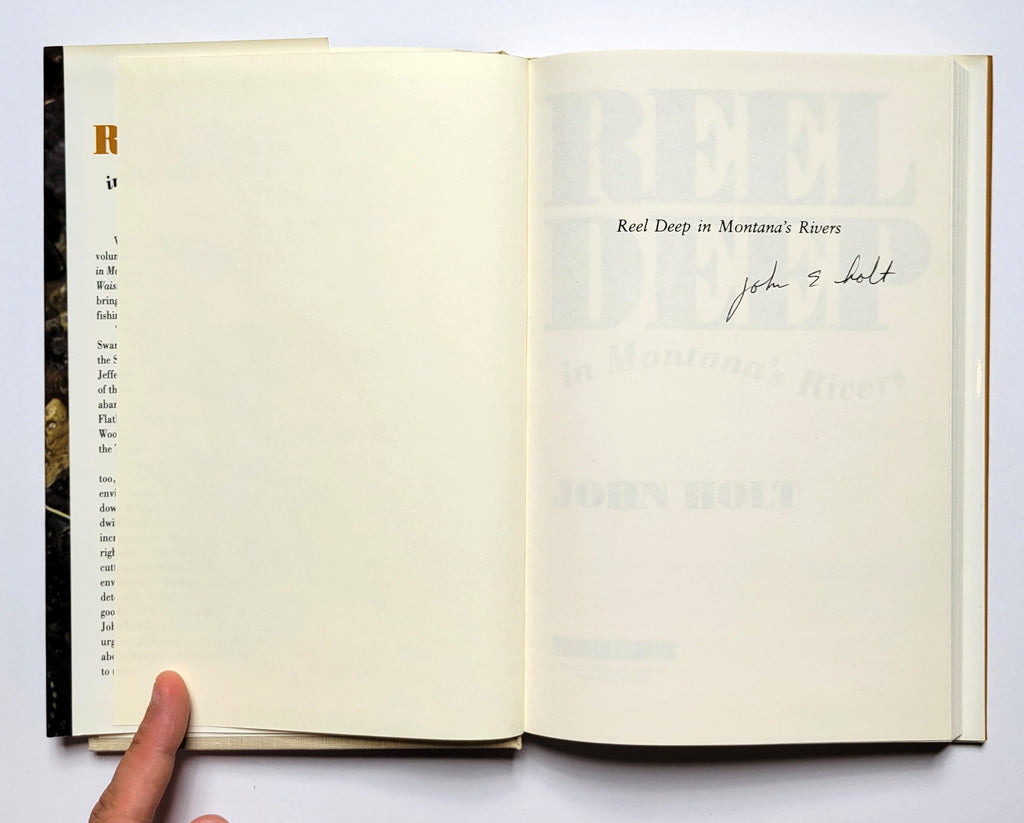 R
in
volun
in Mo
Wais
bring
fishi
Swar
the S
Jeffe
of th
abar
Flat
Woo
the
too,
envi
dow
dwi
incr
righ
cutt
env
det
goo
Joh
urg
abo
to
Reel Deep in Montana's Rivers
john E holt
REEL
DEEP
in Montana's Rivers
JOHN HOLT